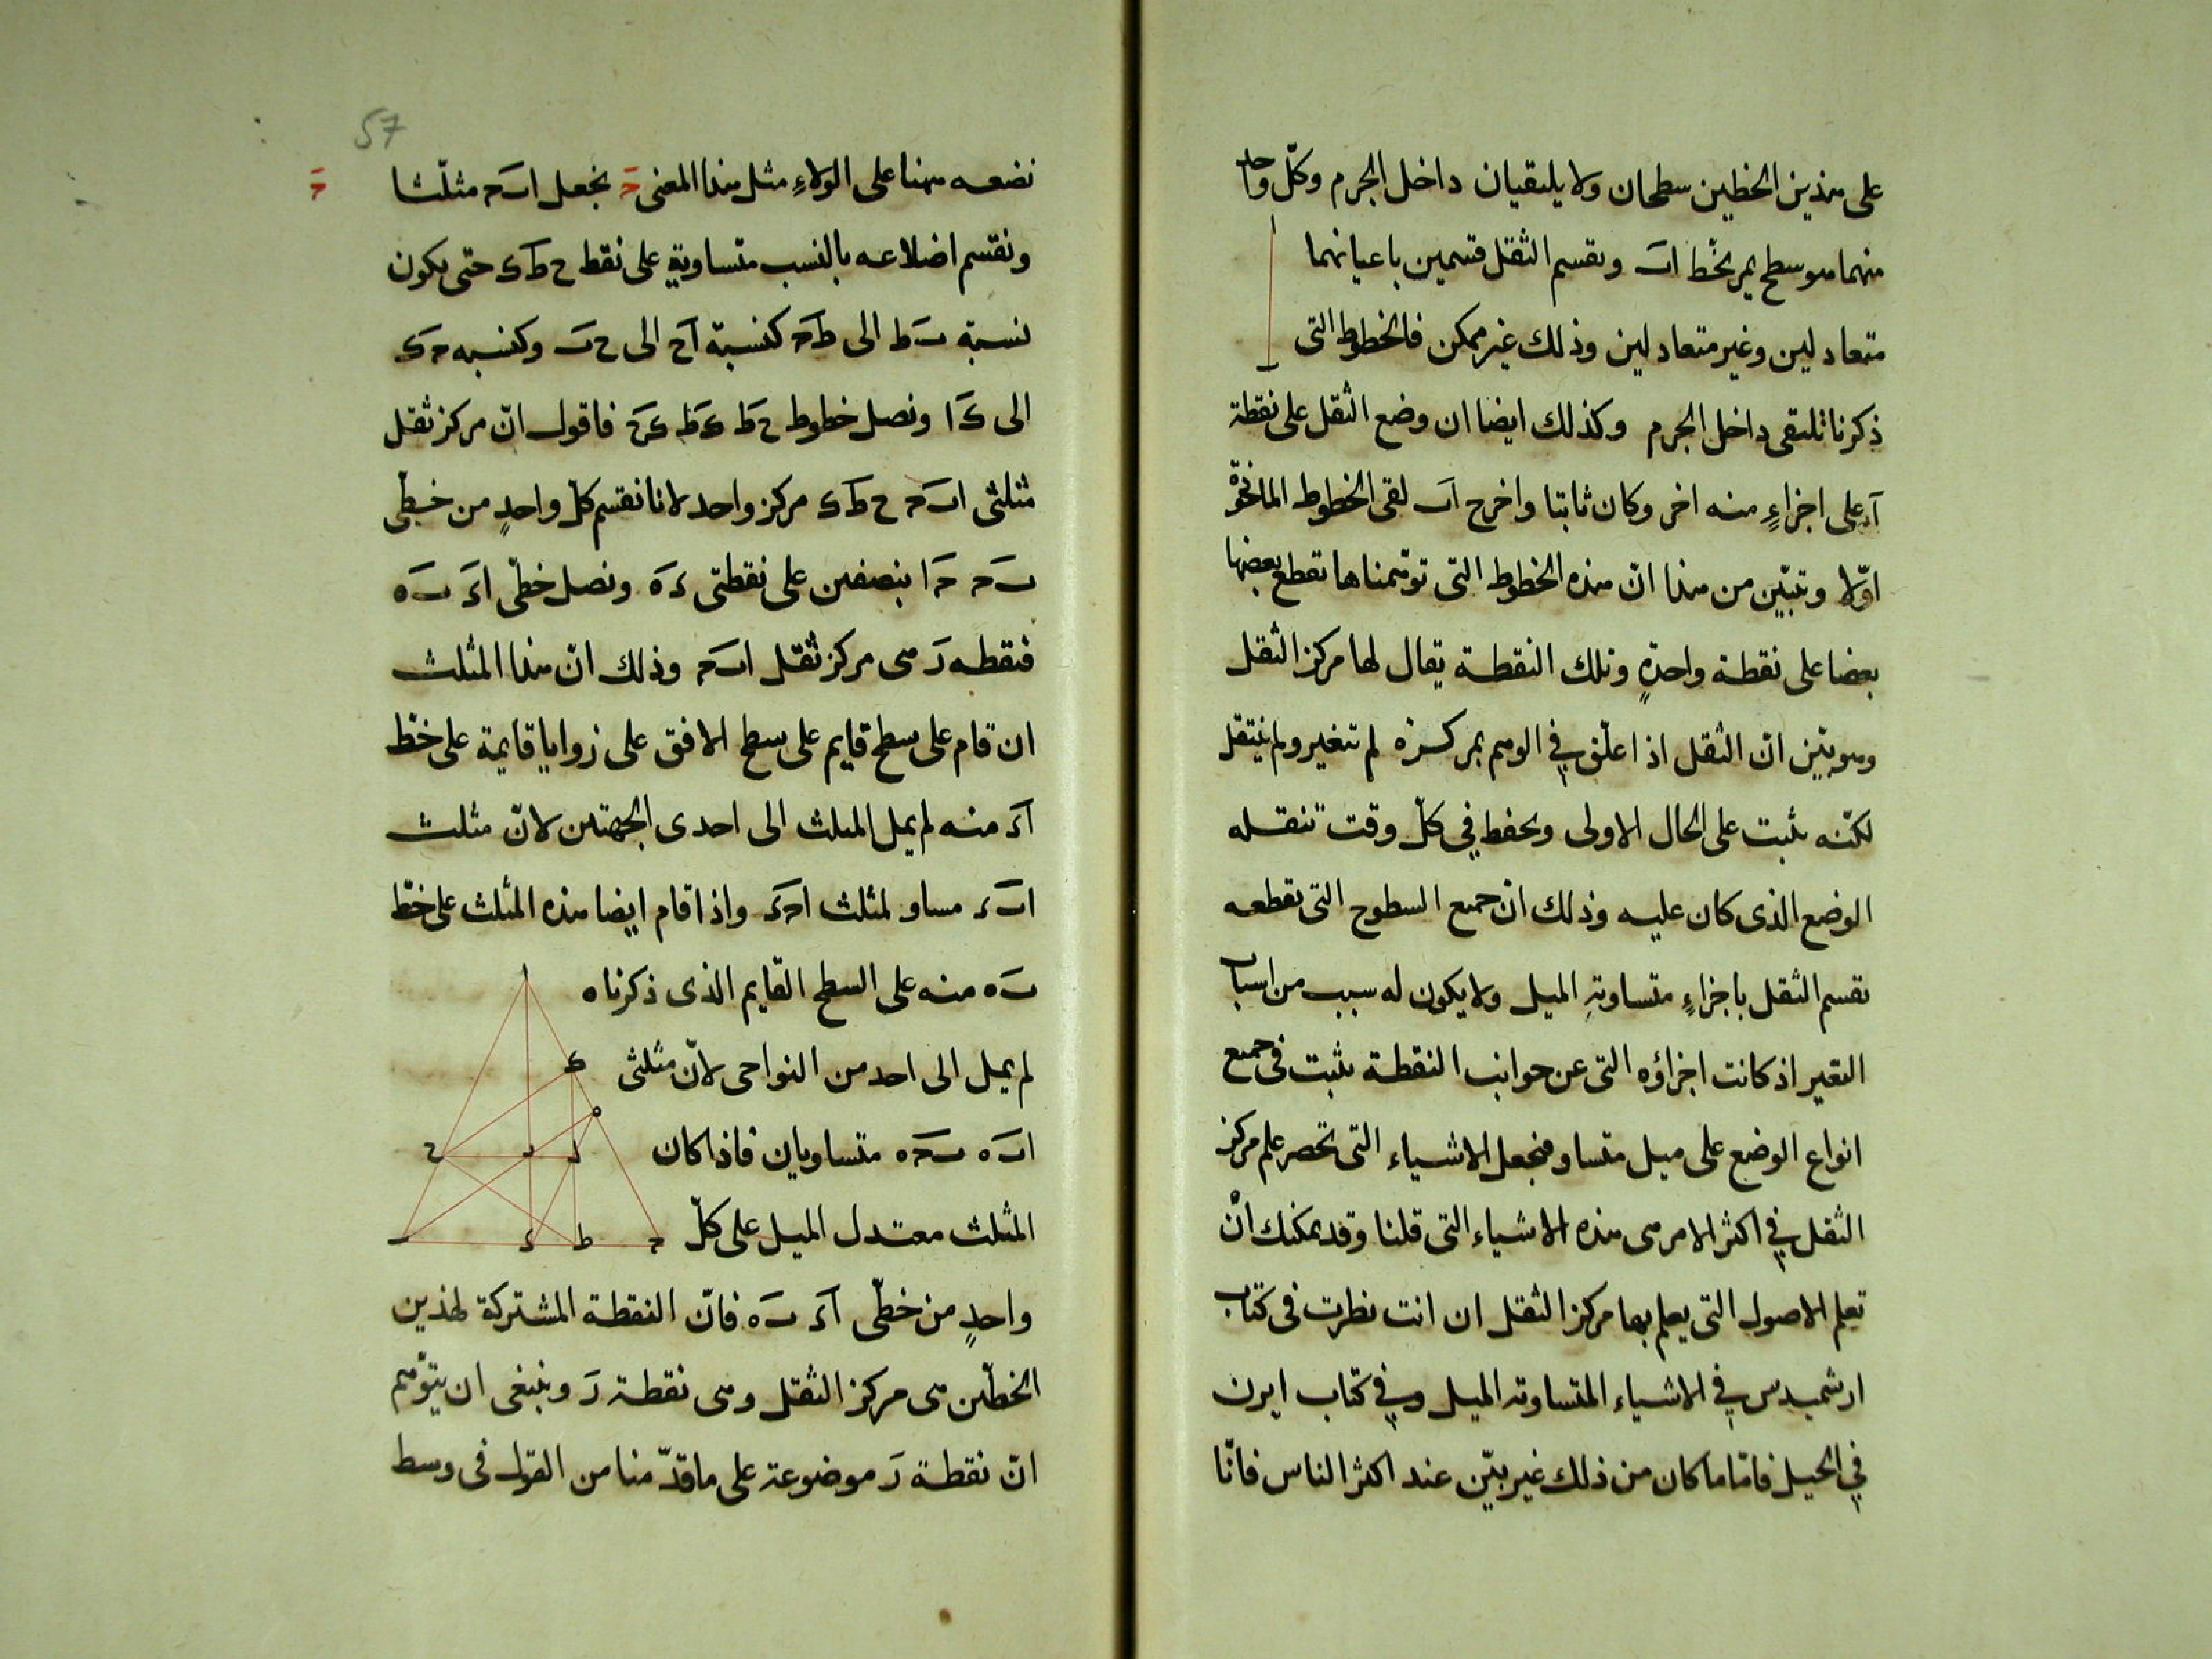 على هذين الخطين سطحان ولا يلتقيان داخل الجرم وكلّ واحد
منهما هو سطح يمر بخط اب ويقسم الثقل قسمين باعيانهما
متعادلين وغير متعادلين وذلك غير ممكن فالخطوط التى
ذكرنا تلتقى داخل الجرم وكذلك ايضا ان وضع الثقل على نقطة
آ على اجزاءٍ منه اخر وكان ثابتا واخرج اب لقى الخطوط الماخوذة
اوّلا وتبيّن من هذا انّ هذه الخطوط التى توهّمناها تقطع بعضها
بعضا على نقطة واحدةٍ وتلك النقطة يقال لها مركز الثقل
وهو بيّن انّ الثقل اذا علّق في الوهم بمركزه لم يتغير ولم ينتقل
لكنّه يثبت على الحال الاولى ويحفط في كلّ وقت تنقله
الوضع الذى كان عليه وذلك انّ جميع السطوح التى تقطعه
تقسم الثقل باجزاءٍ متساويةِ الميل ولا يكون له سبب من اسباب
التغير اذ كانت اجزاؤه التى عن جوانب النقطة يثبت فى جميع
انواع الوضع على ميل متساو فنجعل الاشياء التى تحصر علم مركز
الثقل في اكثر الامر هى هذه الاشياء التى قلنا وقد يمكنك انْ
تعلم الاصول التى يعلم بها مركز الثقل ان انت نظرت فى كتاب
ارشميدس في الاشياء المتساوية الميل وفي كتاب ايرن
في الحيل فامّا ما كان من ذلك غير بيّن عند اكثر الناس فانّا
57
نضعه ههنا على الولاءِ مثل هذا المعنى حَ نجعل ابَحـ مثلّثا
حَ
ونقسم اضلاعه بالنسب متساوية على نقط ح طَ ىَ حتى يكون
نسبة بَ ط الى طَ حـ كنسبة اَح الى ح بَ وكنسبه حـ ىَ
الى ىَ ا ونصل خطوط ح طَ ىَ طَ ىَ حَ فاقول انّ مركز ثقل
مثلثى ابَحـ ح طَ ىَ مركز واحد لانا نقسم كلّ واحدٍ من خطّى
بَ حـ حَـ ا بنصفين على نقطتى ءَ ه ونصل خطّى اءَ بَ ه
فنقطه زَ هى مركز ثقل ابَحـ وذلك انّ هذا المثلث
ان قام على سطح قايم على سطح الافق على زوايا قايمة على خطّ
آءَ منه لم يمل المثلث الى احدى الجهتين لانّ مثلث
ابَ ءَ مساو لمثلث احـءَ واذا قام ايضا هذه المثلث على خطّ
بَ ه منه على السطح القايم الذى ذكرناه
لم يمل الى احد من النواحى لانّ مثلثى
ابَ ه بَ حـ ه متساويان فاذا كان
المثلث معتدل الميل على كلّ
واحدٍ من خطّى آءَ بَ ه فانّ النقطة المشتركة لهذين
الخطّين هى مركز الثقل وهى نقطة زَ وينبغى ان يتوّهم
انّ نقطة زَ موضوعة على ما قدّمنا من القول فى وسط